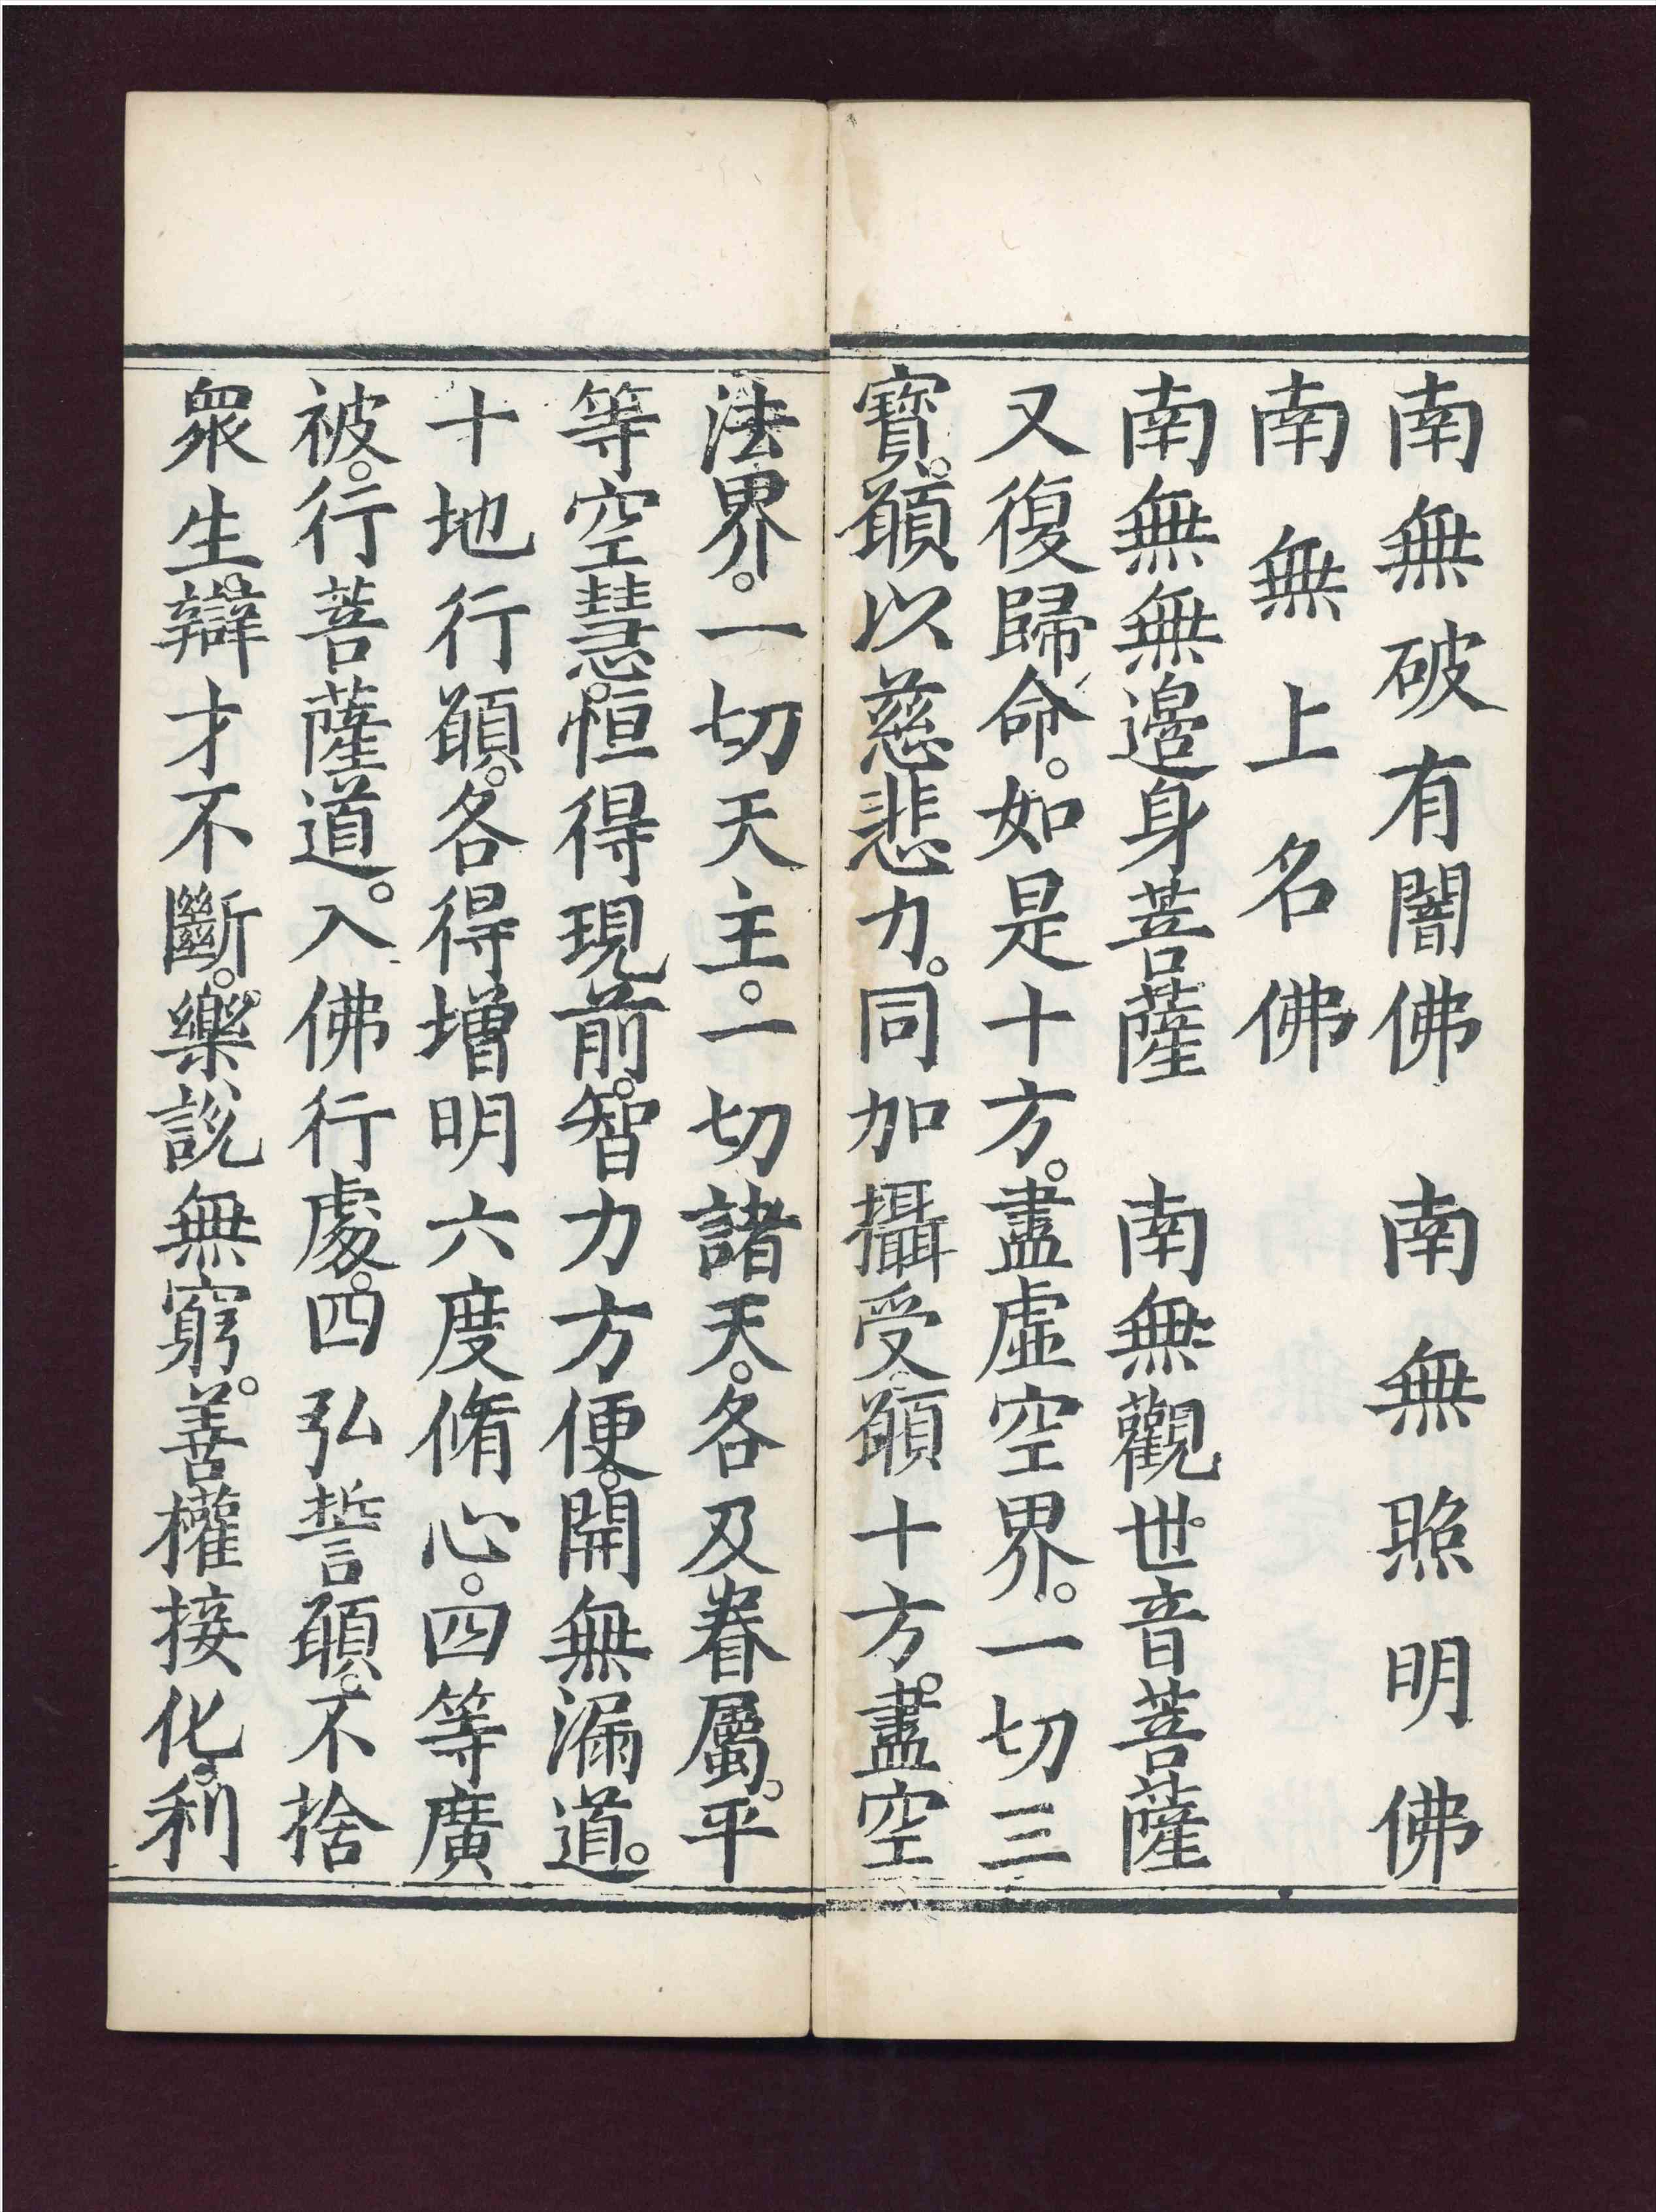 南無破有闇佛　南無照明佛
南無上名佛
南無無邊身菩薩　南無觀世音菩薩
又復歸命。如是十方。盡虛空界。一切三
寶。願以慈悲力。同加攝受願十方。盡空
法界。一切天主。一切諸天。各及眷屬。平
等空慧。恒得現前。智力方便。開無漏道。
十地行願。各得增明六度脩心。四等廣
被。行菩薩道。入佛行處。四弘誓願。不捨
眾生。辯才不斷。樂說無窮。善權接化。利